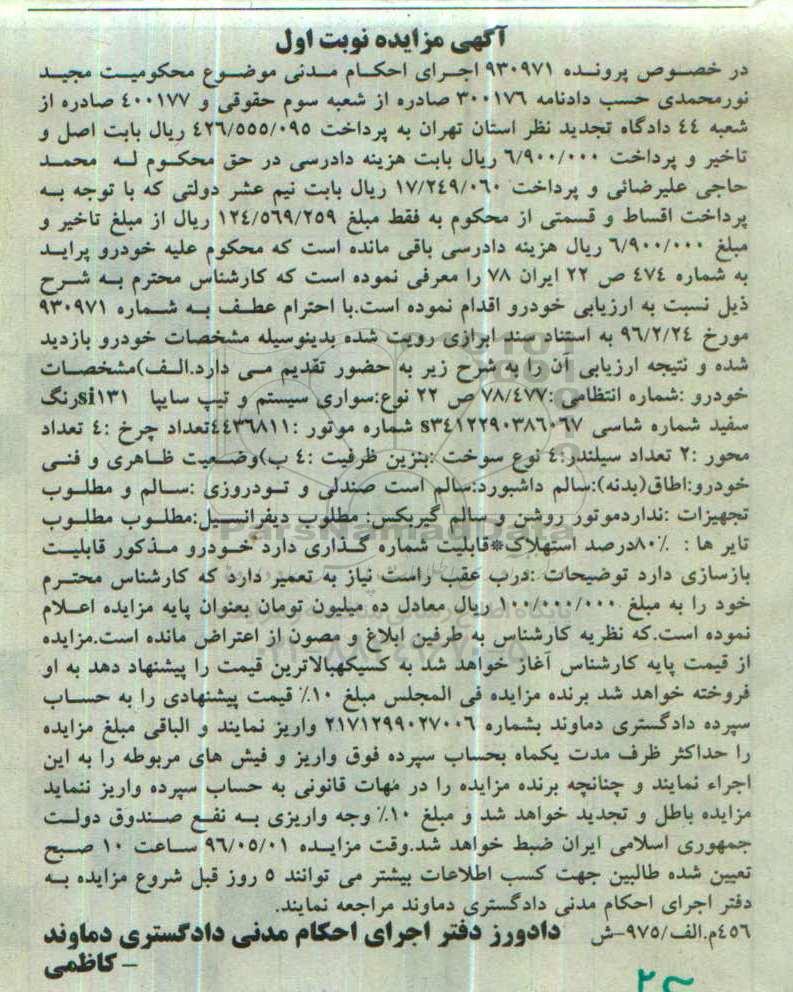 آگهی مزایده نوبت اول
در خصوص پرونده ۹۳۰۹۷۱ اجرای احکام مدنی موضوع محکومیت مجید
نورمحمدی حسب دادنامه ۳۰۰۱۷۶ صادره از شعبه سوم حقوقی و ٤۰۰۱۷۷ صادره از
شعبه ٤٤ دادگاه تجدید نظر استان تهران به پرداخت ٤۲٦/۵۵۵/۰۹۵ ریال بابت اصل و
تاخیر و پرداخت ٦/۹۰۰/۰۰۰ ریال بابت هزینه دادرسی در حق محکوم له محمد
حاجی علیرضائی و پرداخت ۱۷/۲٤۹/۰٦۰ ریال بابت نیم عشر دولتی که با توجه به
پرداخت اقساط و قسمتی از محکوم به فقط مبلغ ۱۲٤/۵٦۹/۲۵۹ ریال از مبلغ تاخیر و
مبلغ ٦/۹۰۰/۰۰۰ ریال هزینه دادرسی باقی مانده است که محکوم علیه خودرو پراید
به شماره ٤۷٤ ص ۲۲ ایران ۷۸ را معرفی نموده است که کارشناس محترم به شرح
ذیل نسبت به ارزیابی خودرو اقدام نموده است.با احترام عطف به شماره ۹۳۰۹۷۱
مورخ ۹٦/۲/۲٤ به استناد سند ابرازی رویت شده بدینوسیله مشخصات خودرو بازدید
شده و نتیجه ارزیابی آن را به شرح زیر به حضور تقدیم می دارد.الف)مشخصات
خودرو :شماره انتظامی :۷۸/٤۷۷ ص ۲۲ نوع:سواری سیستم و تیپ سایپا si۱۳۱رنگ
سفید شماره شاسی s۳٤۱۲۲۹۰۳۸٦۰٦۷ شماره موتور :٤٤۳٦۸۱۱تعداد چرخ :٤ تعداد
محور :۲ تعداد سیلندر:٤ نوع سوخت :بنزین ظرفیت :٤ ب)وضعیت ظاهری و فنی
خودرو:اطاق(بدنه):سالم داشبورد:سالم است صندلی و تودروزی :سالم و مطلوب
تجهیزات :نداردموتور روشن و سالم گیربکس: مطلوب دیفرانسیل:مطلوب مطلوب
تایر ها : ۸۰٪درصد استهلاک*قابلیت شماره گذاری دارد خودرو مذکور قابلیت
بازسازی دارد توضیحات :درب عقب راست نیاز به تعمیر دارد که کارشناس محترم
خود را به مبلغ ۱۰۰/۰۰۰/۰۰۰ ریال معادل ده میلیون تومان بعنوان پایه مزایده اعلام
نموده است.که نظریه کارشناس به طرفین ابلاغ و مصون از اعتراض مانده است.مزایده
از قیمت پایه کارشناس آغاز خواهد شد به کسیکهبالاترین قیمت را پیشنهاد دهد به او
فروخته خواهد شد برنده مزایده فی المجلس مبلغ ۱۰٪ قیمت پیشنهادی را به حساب
سپرده دادگستری دماوند بشماره ۲۱۷۱۲۹۹۰۲۷۰۰٦ واریز نمایند و الباقی مبلغ مزایده
را حداکثر ظرف مدت یکماه بحساب سپرده فوق واریز و فیش های مربوطه را به این
اجراء نمایند و چنانچه برنده مزایده را در مهات قانونی به حساب سپرده واریز ننماید
مزایده باطل و تجدید خواهد شد و مبلغ ۱۰٪ وجه واریزی به نفع صندوق دولت
جمهوری اسلامی ایران ضبط خواهد شد.وقت مزایده ۹٦/۰۵/۰۱ ساعت ۱۰ صبح
تعیین شده طالبین جهت کسب اطلاعات بیشتر می توانند ۵ روز قبل شروع مزایده به
دفتر اجرای احکام مدنی دادگستری دماوند مراجعه نمایند.
٤۵٦م.الف/۹۷۵-ش دادورز دفتر اجرای احکام مدنی دادگستری دماوند
- کاظمی